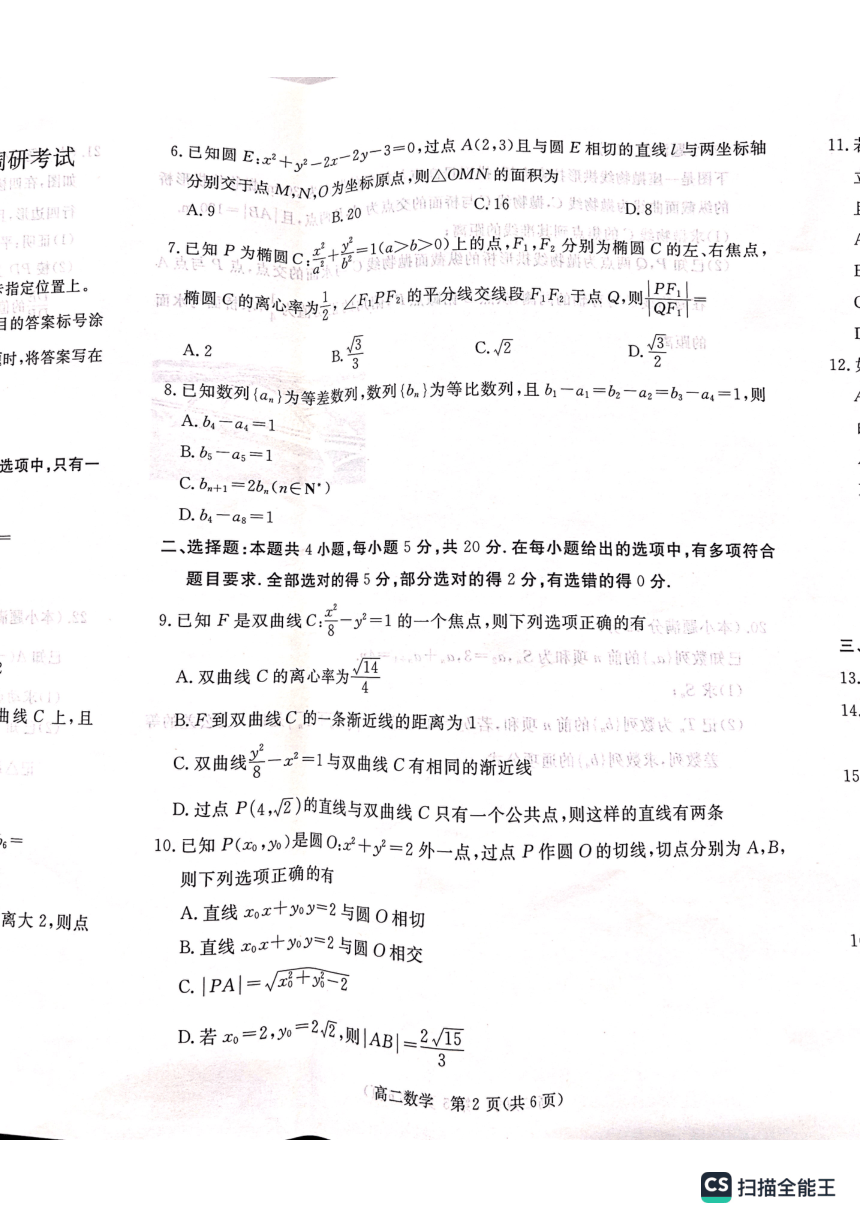 调研考试
去指定位置上。
目的答案标号涂
时,将答案写在
选项中,只有一
=
2
曲线 C 上,且
b₆=
离大 2,则点
6.已知圆 E:x²+y²-2x-2y-3=0,过点 A(2,3)且与圆 E 相切的直线 l 与两坐标轴
分别交于点 M,N,O为坐标原点,则△OMN 的面积为
A.9 B.20 C.16 D.8
7.已知 P 为椭圆 C:x²/a²+y²/b²=1(a>b>0)上的点,F₁,F₂ 分别为椭圆 C 的左、右焦点,
椭圆 C 的离心率为1/2,∠F₁PF₂ 的平分线交线段 F₁F₂ 于点 Q,则|PF₁|/|QF₁|=
A.2 B.√3/3 C.√2 D.√3/2
8.已知数列{aₙ}为等差数列,数列{bₙ}为等比数列,且 b₁-a₁=b₂-a₂=b₃-a₄=1,则
A.b₄-a₄=1
B.b₅-a₅=1
C.bₙ₊₁=2bₙ(n∈N*)
D.b₄-a₈=1
二、选择题:本题共 4 小题,每小题 5 分,共 20 分.在每小题给出的选项中,有多项符合
题目要求.全部选对的得 5 分,部分选对的得 2 分,有选错的得 0 分.
9.已知 F 是双曲线 C:x²/8-y²=1 的一个焦点,则下列选项正确的有
A.双曲线 C 的离心率为√14/4
B.F 到双曲线 C 的一条渐近线的距离为 1
C.双曲线y²/8-x²=1与双曲线 C 有相同的渐近线
D.过点 P(4,√2)的直线与双曲线 C 只有一个公共点,则这样的直线有两条
10.已知 P(x₀,y₀)是圆 O:x²+y²=2 外一点,过点 P 作圆 O 的切线,切点分别为 A,B,
则下列选项正确的有
A.直线 x₀x+y₀y=2 与圆 O 相切
B.直线 x₀x+y₀y=2 与圆 O 相交
C.|PA|=√(x₀²+y₀²-2)
D.若 x₀=2,y₀=2√2,则|AB|=2√15/3
高二数学 第 2 页(共 6 页)
11.若
12.如
三、
13.
14.
15
1
CS 扫描全能王